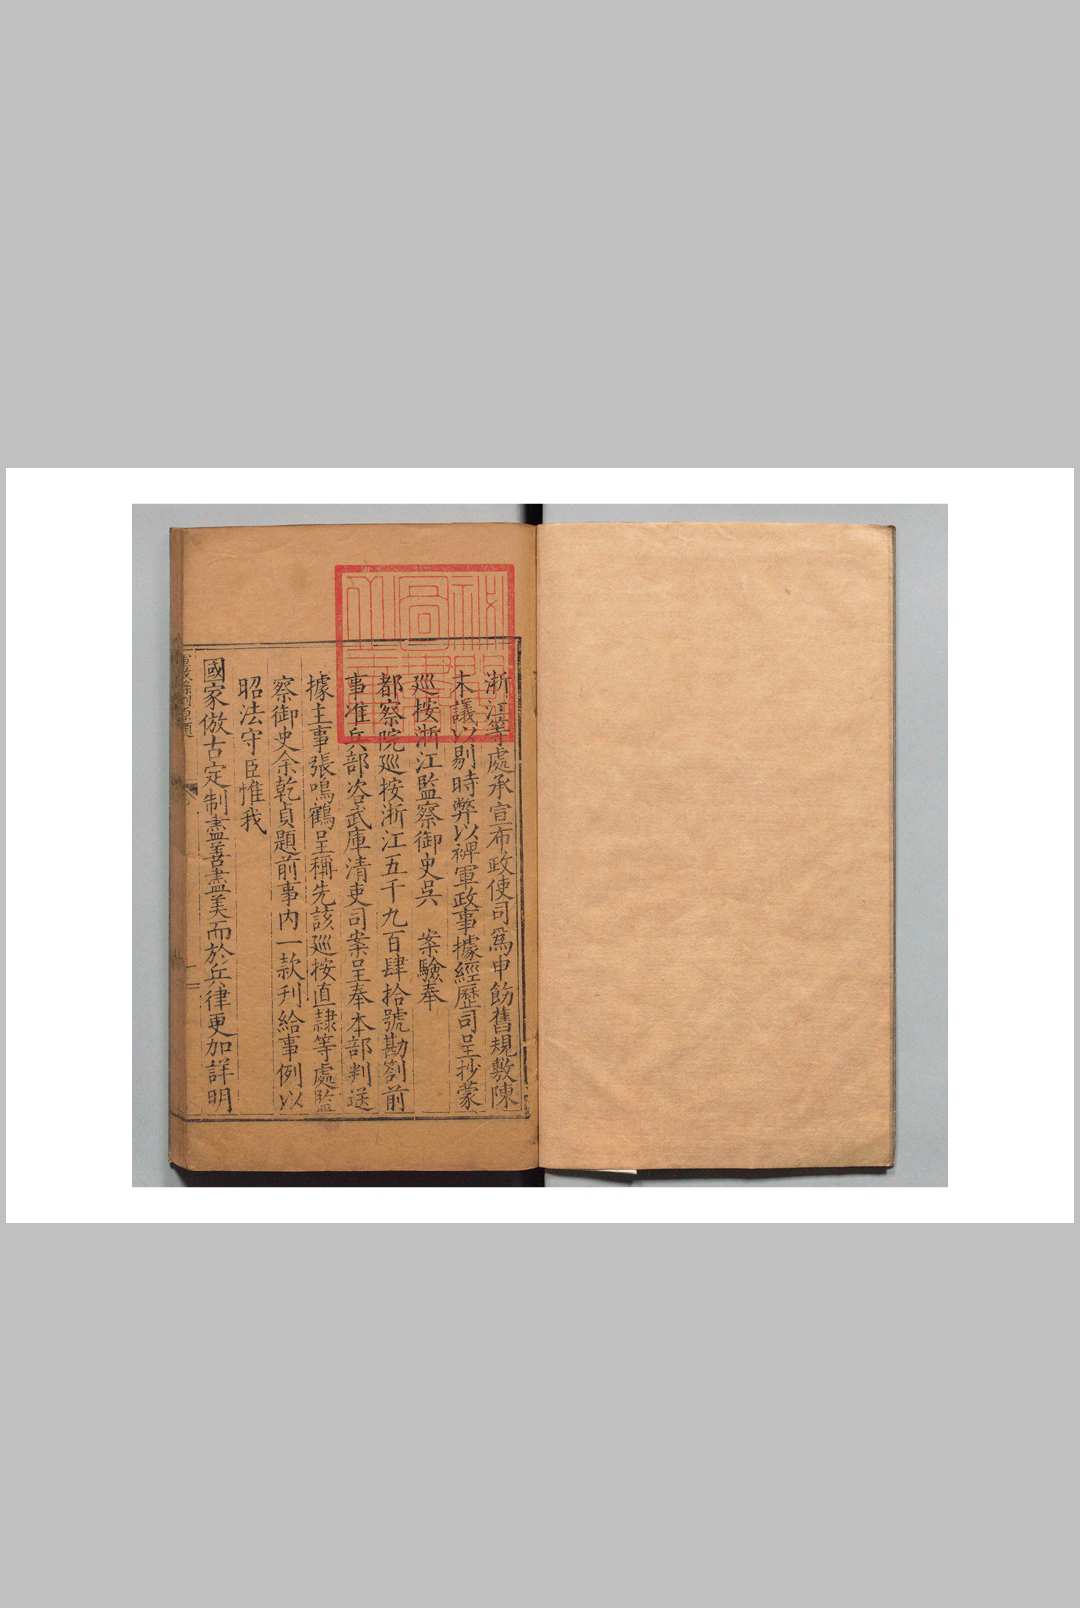 浙江等處承宣布政使司爲申飭舊規敷陳
末議以剔時弊以裨軍政事據經歷司呈抄蒙
廵按浙江監察御史吳 案驗奉
都察院廵按浙江五千九百肆拾號勘劄前
事准兵部咨武庫清吏司案呈奉本部判送
據主事張鳴鶴呈稱先該廵按直隷等處監
察御史余乾貞題前事内一款刋給事例以
昭法守臣惟我
國家倣古定制盡善盡美而於兵律更加詳明